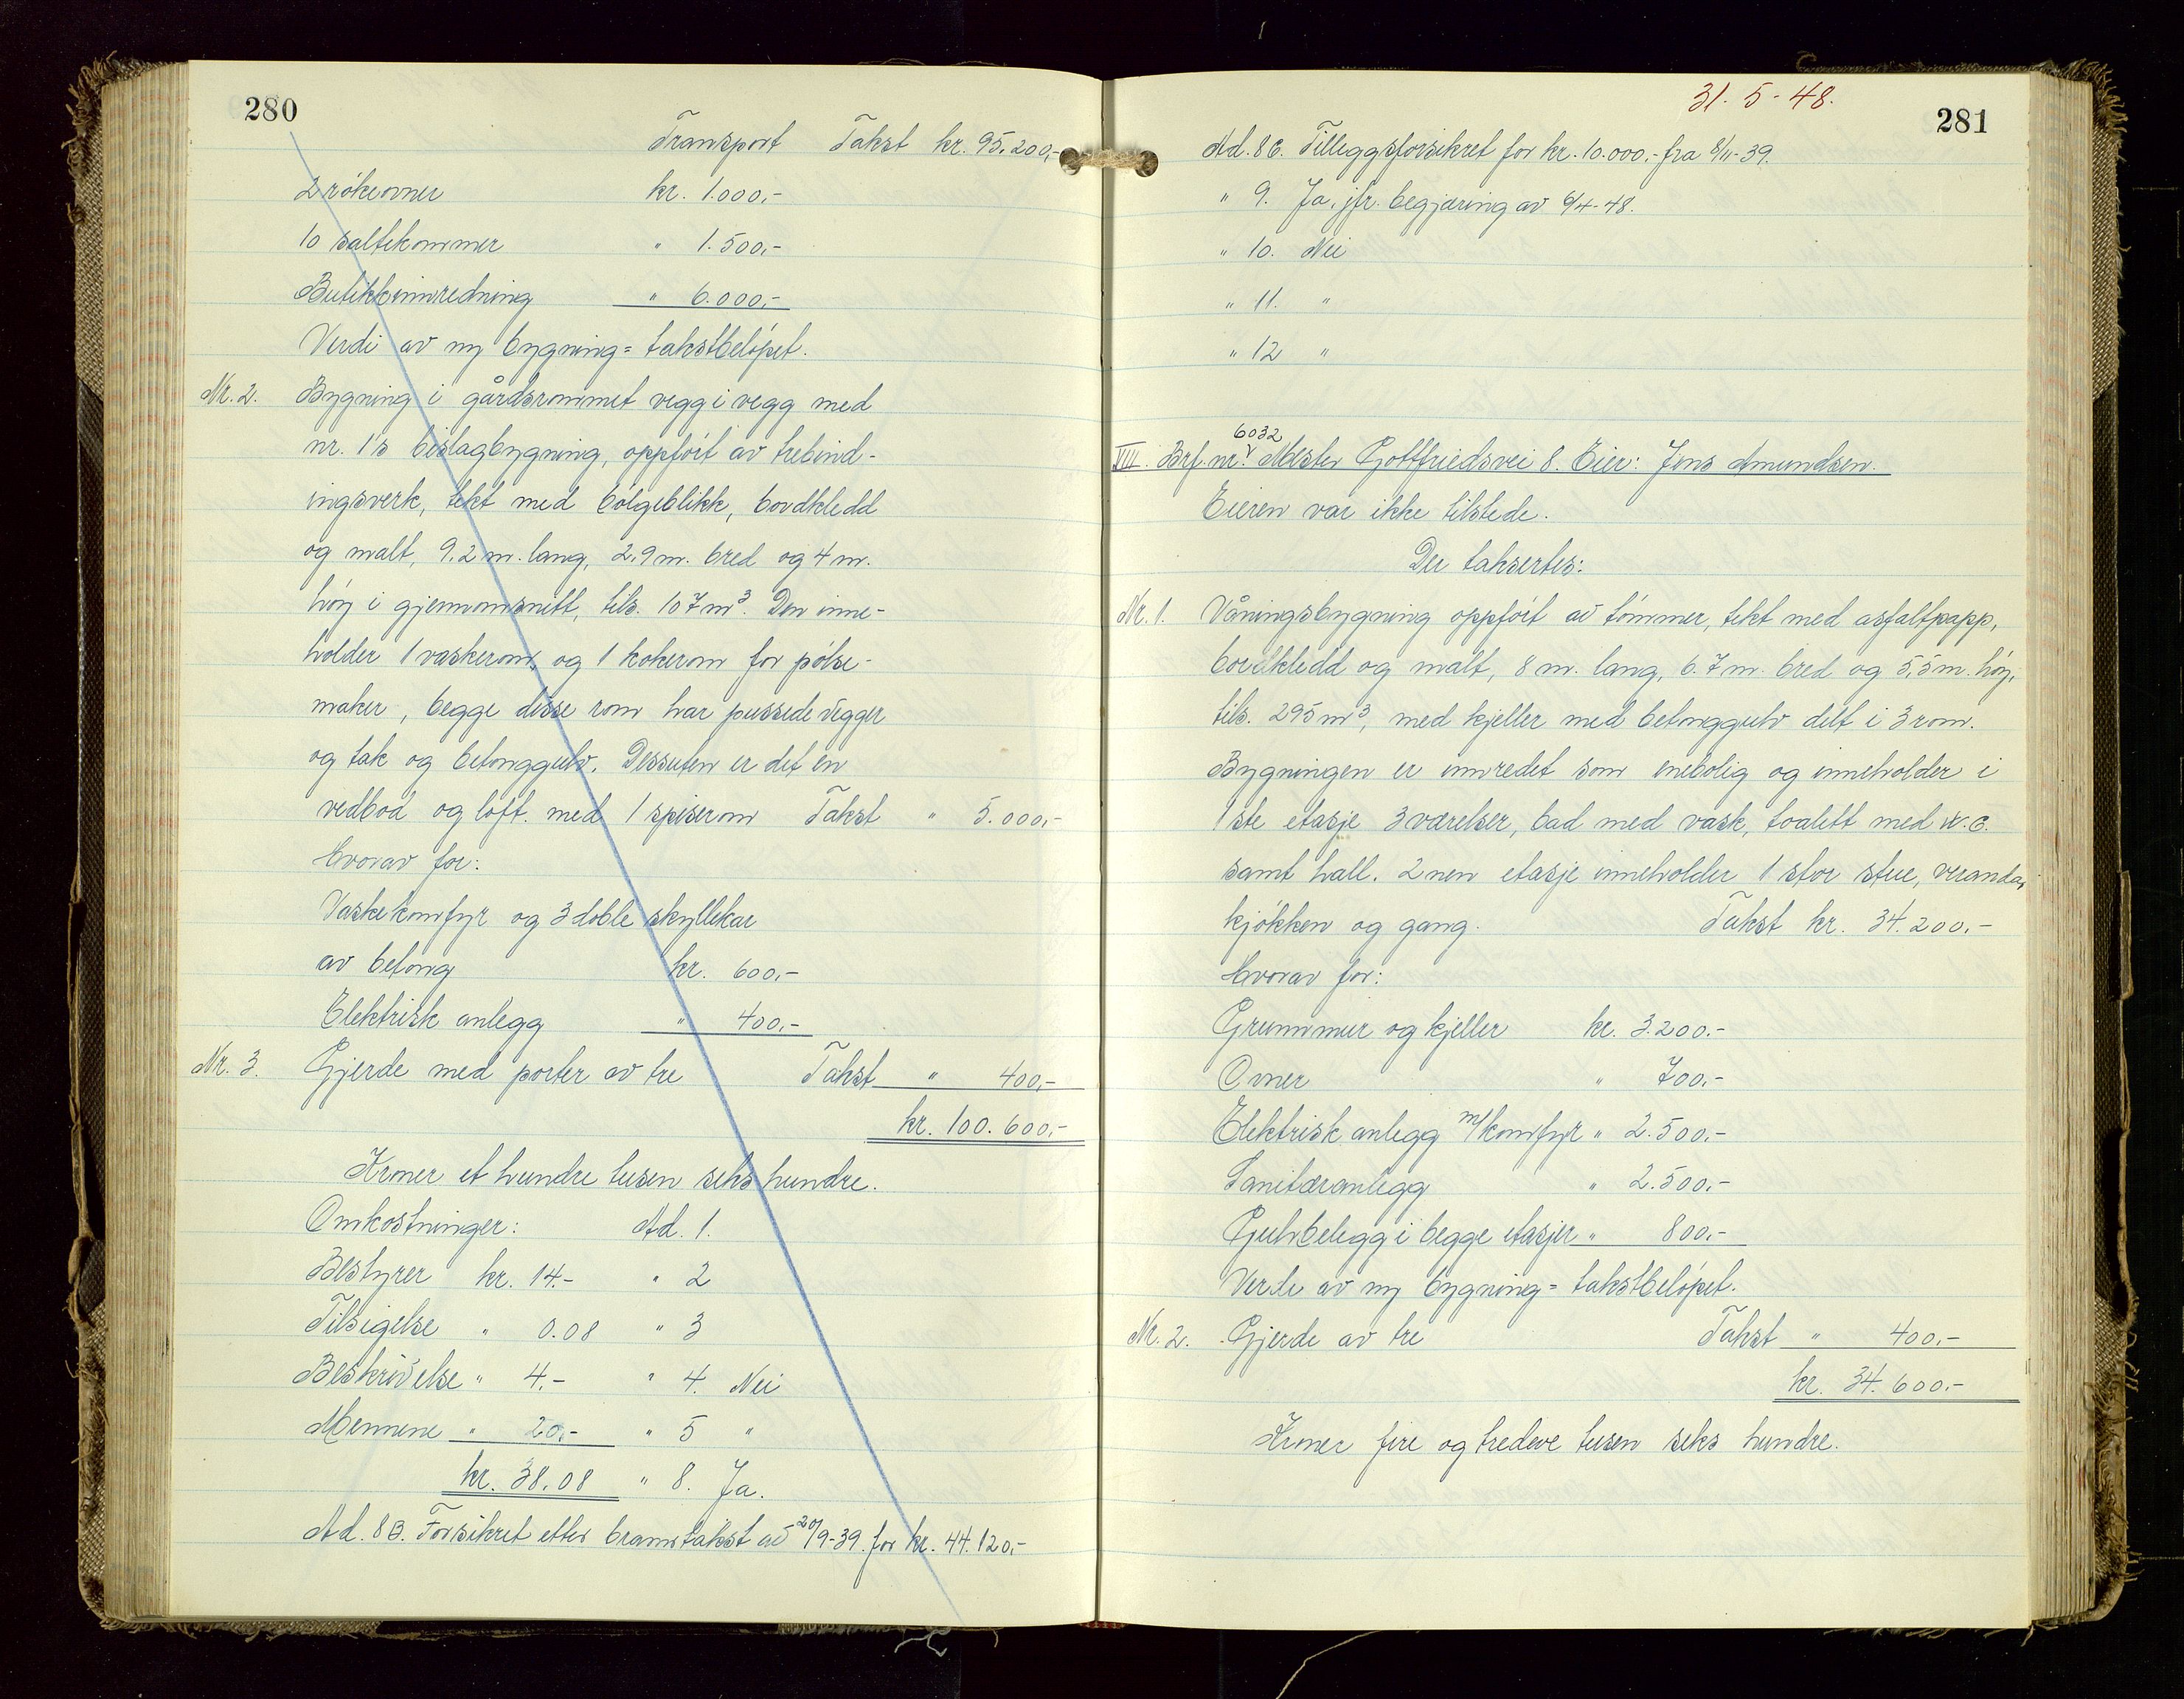 280
Transport Takst kr. 95.200,-
2 rökeovner kr. 1.000,-
10 saltekommer " 1.500,-
Butikkinnredning " 6.000,-
Verdi av ny bygning = takstbelöpet.
Nr. 2. Bygning i gårdsrommet vegg i vegg med
nr. 1's bislagbygning, oppfört av trebind-
ingsverk, tekt med bölgeblikk, bordkledd
og malt, 9.2 m. lang, 2.9 m. bred og 4 m.
höy i gjennomsnitt, tils. 107 m³. Den inne-
holder 1 vaskerom, og 1 kokerom for pölse-
maker, begge disse rom har pussede vegger
og tak og betonggulv. Dessuten er det en
vedbod og loft. med 1 spiserom Takst " 5.000,-
Hvorav for:
Vaskekomfyr og 3 doble skyllekar
av betong kr. 600,-
Elektrisk anlegg " 400,-
Nr. 3. Gjerde med porter av tre Takst " 400,-
kr. 100.600,-
Kroner et hundre tusen seks hundre.
Omkostninger: Ad. 1.
Bestyrer kr. 14.- " 2
Tilsigelse " 0.08 " 3
Beskrivelse " 4.- " 4. Nei
Mennene " 20.- " 5 "
kr. 38.08 " 8. Ja.
Ad. 8B. Forsikret etter branntakst av 20/9-39. for kr. 44.120,-
31. 5 - 48.
281
Ad. 8C. Tilleggsforsikret for kr. 10.000.- fra 8/11-39.
" 9. Ja, jfr. begjæring av 6/4-48.
" 10. Nei
" 11. "
" 12 "
6032
VIII. Brf. nr. Mester Gottfriedsvei 8. Eier: Jens Amundsen.
Eieren var ikke tilstede.
Der taksertes:
Nr. 1. Våningsbygning oppfört av tömmer, tekt med asfaltpapp,
bordkledd og malt, 8 m. lang, 6.7 m. bred og 5,5 m. höy,
tils. 295 m³, med kjeller med betonggulv delt i 3 rom.
Bygningen er innredet som enebolig og inneholder i
1ste etasje 3 værelser, bad med vask, toalett med w.c.
samt hall. 2nen etasje inneholder 1 stor stue, veranda,
kjökken og gang. Takst kr. 34.200.-
Hvorav for:
Grunnmur og kjeller kr. 3.200.-
Ovner " 700.-
Elektrisk anlegg m/komfyr " 2.500.-
Sanitæranlegg " 2.500.-
Gulvbelegg i begge etasjer " 800.-
Verdi av ny bygning = takstbelöpet.
Nr. 2. Gjerde av tre Takst " 400.-
kr. 34.600.-
Kroner fire og tredeve tusen seks hundre.